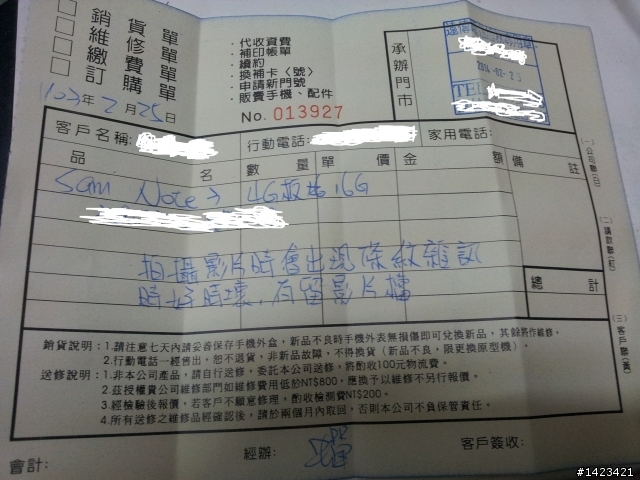 銷貨單
維修單
繳費單
訂購單
· 代收資費
· 補印帳單
· 續約
· 換補卡〈號〉
· 申請新門號
· 販賣手機、配件
No. 013927
承辦門市
TEL
103年2月25日
客戶名稱:
行動電話:
家用電話:
品名
數量
單價
金額
備註
Sam Note
4G版 16G
拍攝影片時會出現條紋雜訊
時好時壞,有留影片檔
總計
(一)公司聯(白)
(二)請款聯(紅)
(三)客戶聯(黃)
銷貨說明:1.請注意七天內請妥善保存手機外盒,新品不良時手機外表無損傷即可兌換新品,其餘將作維修。
2.行動電話一經售出,恕不退貨,非新品故障,不得換貨(新品不良,限更換原型機)。
送修說明:1.非本公司產品,請自行送修,委託本公司送修,將酌收100元物流費。
2.茲授權貴公司維修部門如維修費用低於NT$800,應換予以維修不另行報價。
3.經檢驗後報價,若客戶不願意修理,酌收檢測費NT$200。
4.所有送修之維修品經確認後,請於兩個月內取回,否則本公司不負保管責任。
會計:
經辦:
客戶簽收:
#1423421